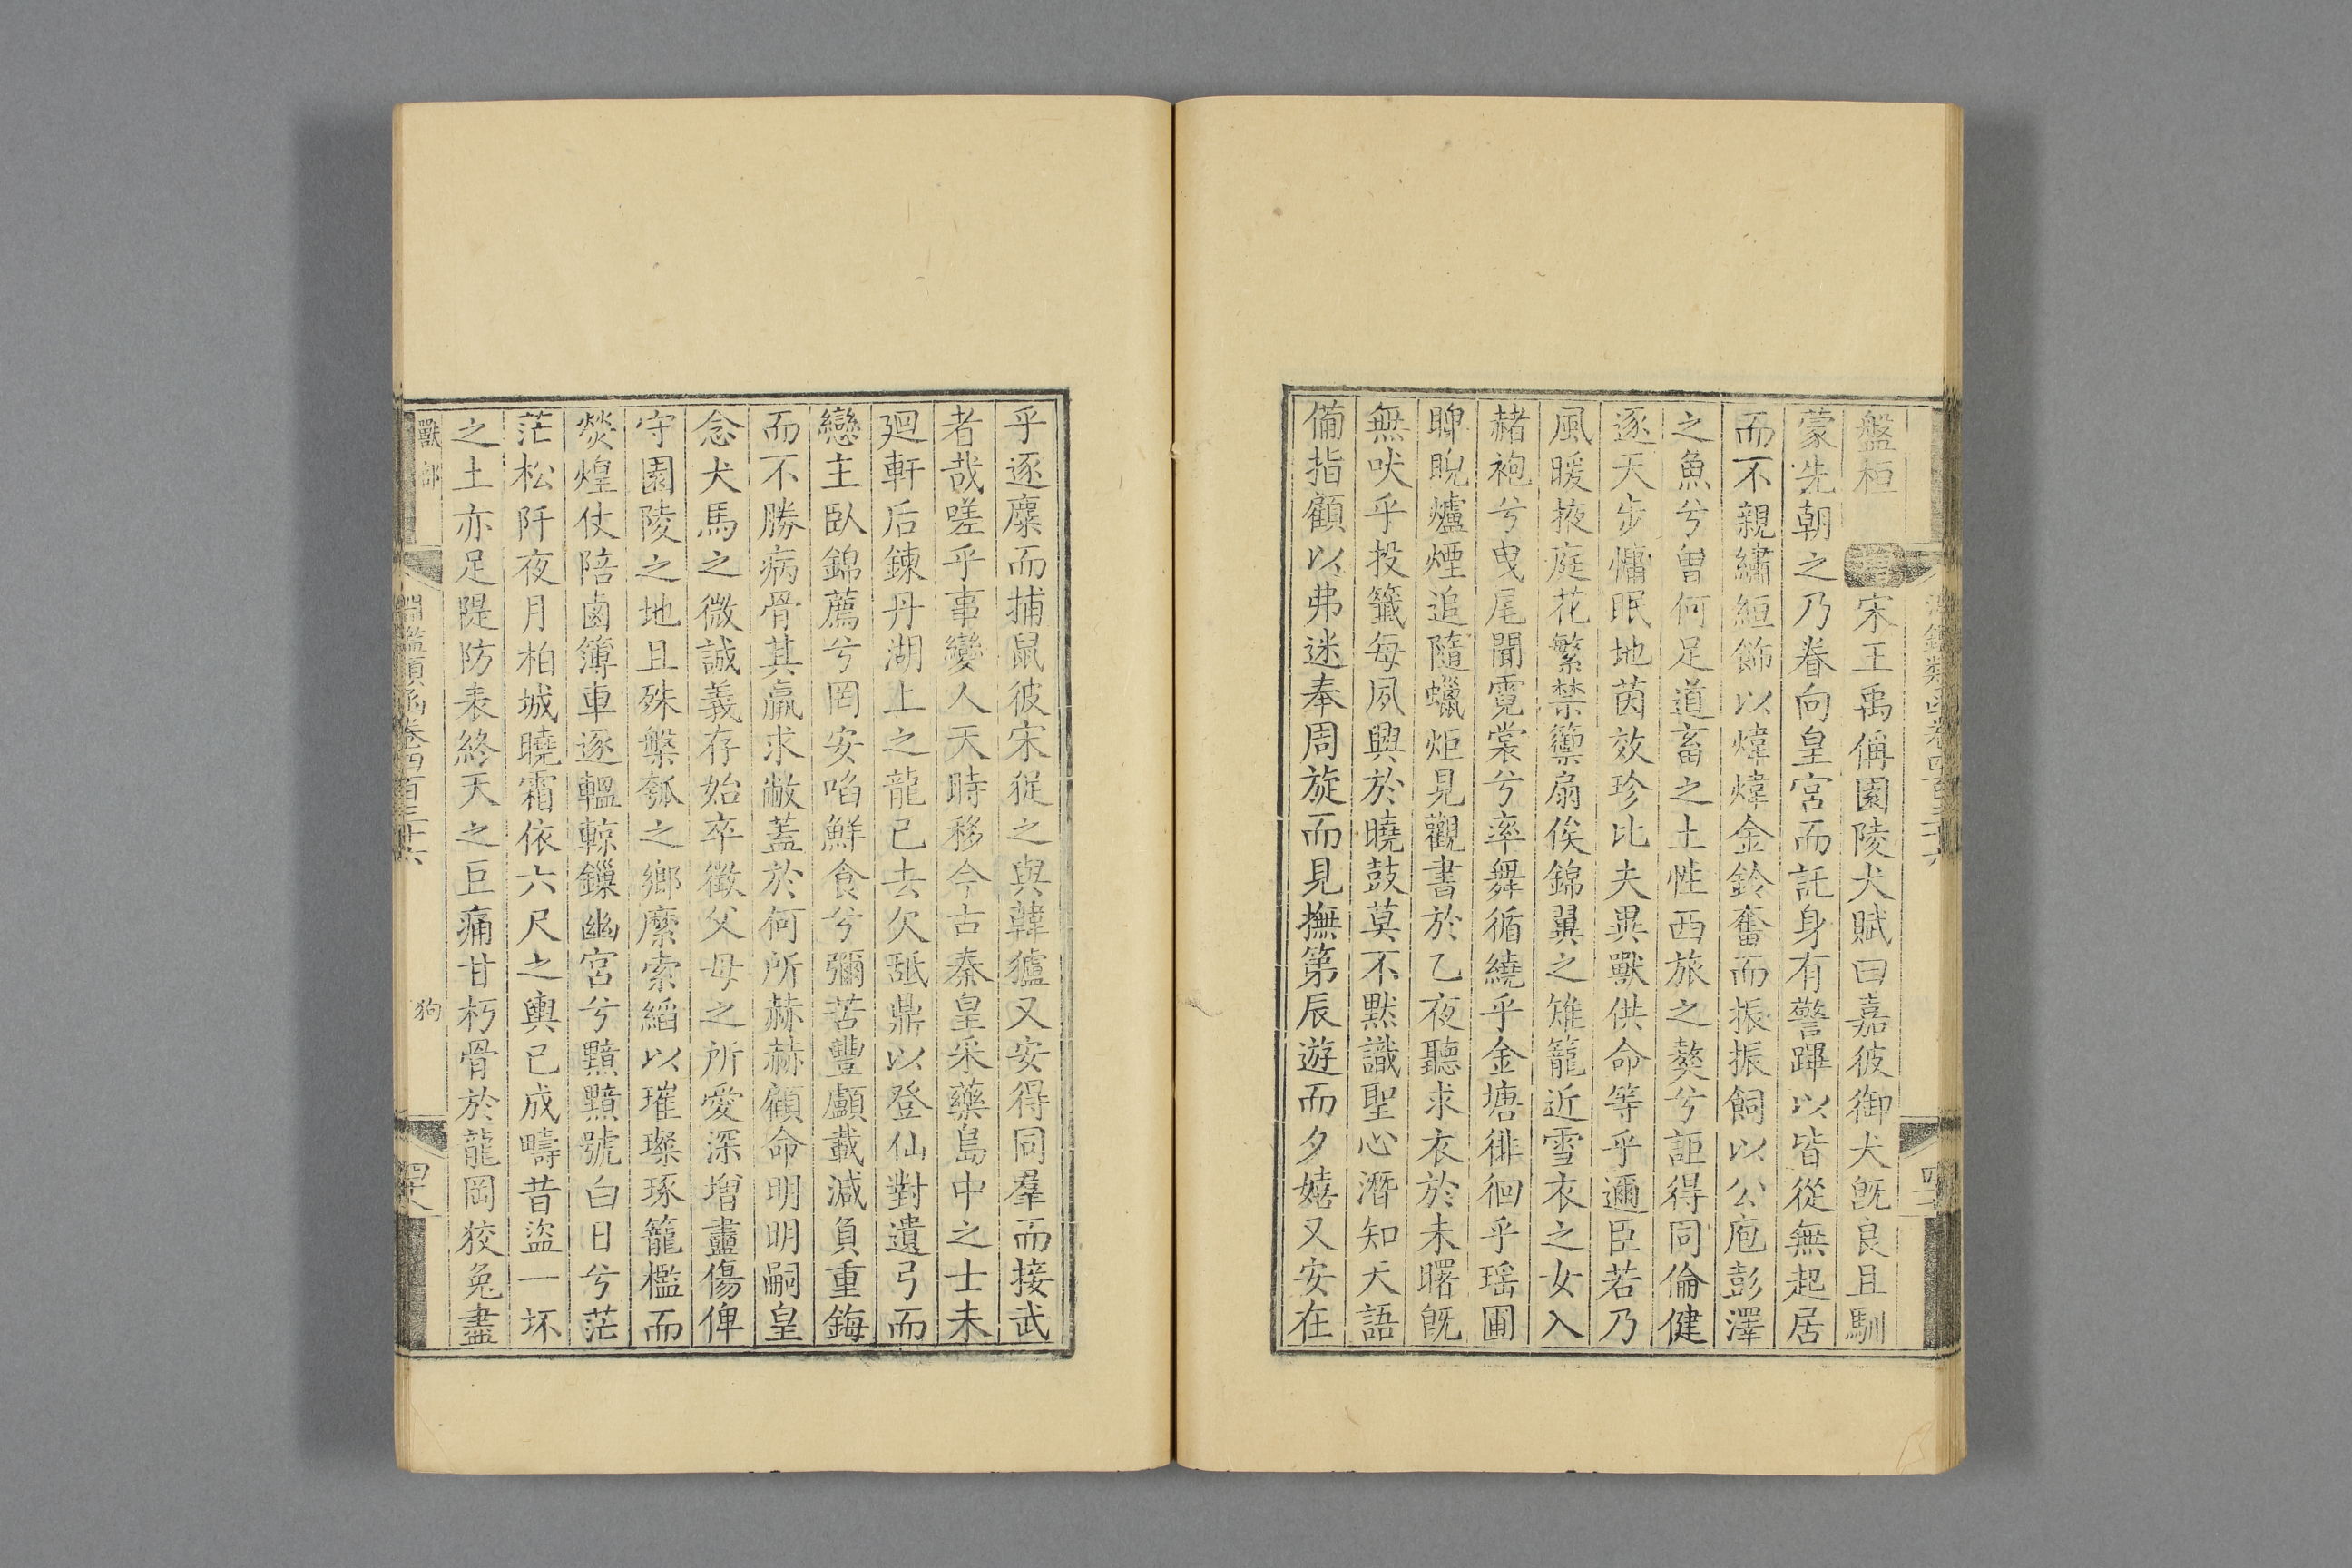 盤桓 增 宋王禹偁園陵犬賦曰嘉彼御犬旣良且馴
蒙先朝之乃眷向皇宮而託身有警蹕以皆從無起居
而不親繡絙飾以煒煒金鈴奮而振振飼以公庖彭澤
之魚兮曾何足道畜之土性西旅之獒兮詎得同倫健
逐天步慵眠地茵效珍比夫異獸供命等乎邇臣若乃
風暖掖庭花繁禁籞扇俟錦翼之雉籠近雪衣之女入
赭袍兮曳尾聞霓裳兮率舞循繞乎金塘徘徊乎瑶圃
睥睨爐煙追隨蠟炬見觀書於乙夜聽求衣於未曙旣
無吠乎投籤每夙興於曉鼓莫不默識聖心潛知天語
備指顧以弗迷奉周旋而見撫第辰遊而夕嬉又安在
乎逐麋而捕鼠彼宋㹱之與韓獹又安得同羣而接武
者哉嗟乎事變人天時移今古秦皇采藥島中之士未
廻軒后鍊丹湖上之龍已去欠舐鼎以登仙對遺弓而
戀主臥錦薦兮罔安啗鮮食兮彌苦豐顱載減負重鋂
而不勝病骨其羸求敝蓋於何所赫赫顧命明明嗣皇
念犬馬之微誠義存始卒徵父母之所愛深增盡傷俾
守園陵之地且殊槃瓠之鄉縻索縚以璀璨琢籠檻而
熒煌仗陪鹵簿車逐轀輬鏁幽宮兮黯黯號白日兮茫
茫松阡夜月柏城曉霜依六尺之輿已成疇昔盜一坏
之土亦足隄防表終天之巨痛甘朽骨於龍岡狡兔盡
獸部 淵鑑類函卷四百三十六 狗